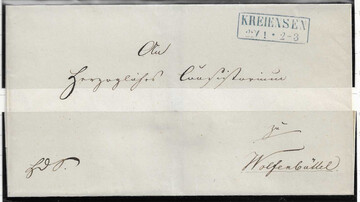 KREIENSEN
27/1 * 2-3
An
Herzogliches Consistorium
zu
Wolfenbüttel.
HdS.